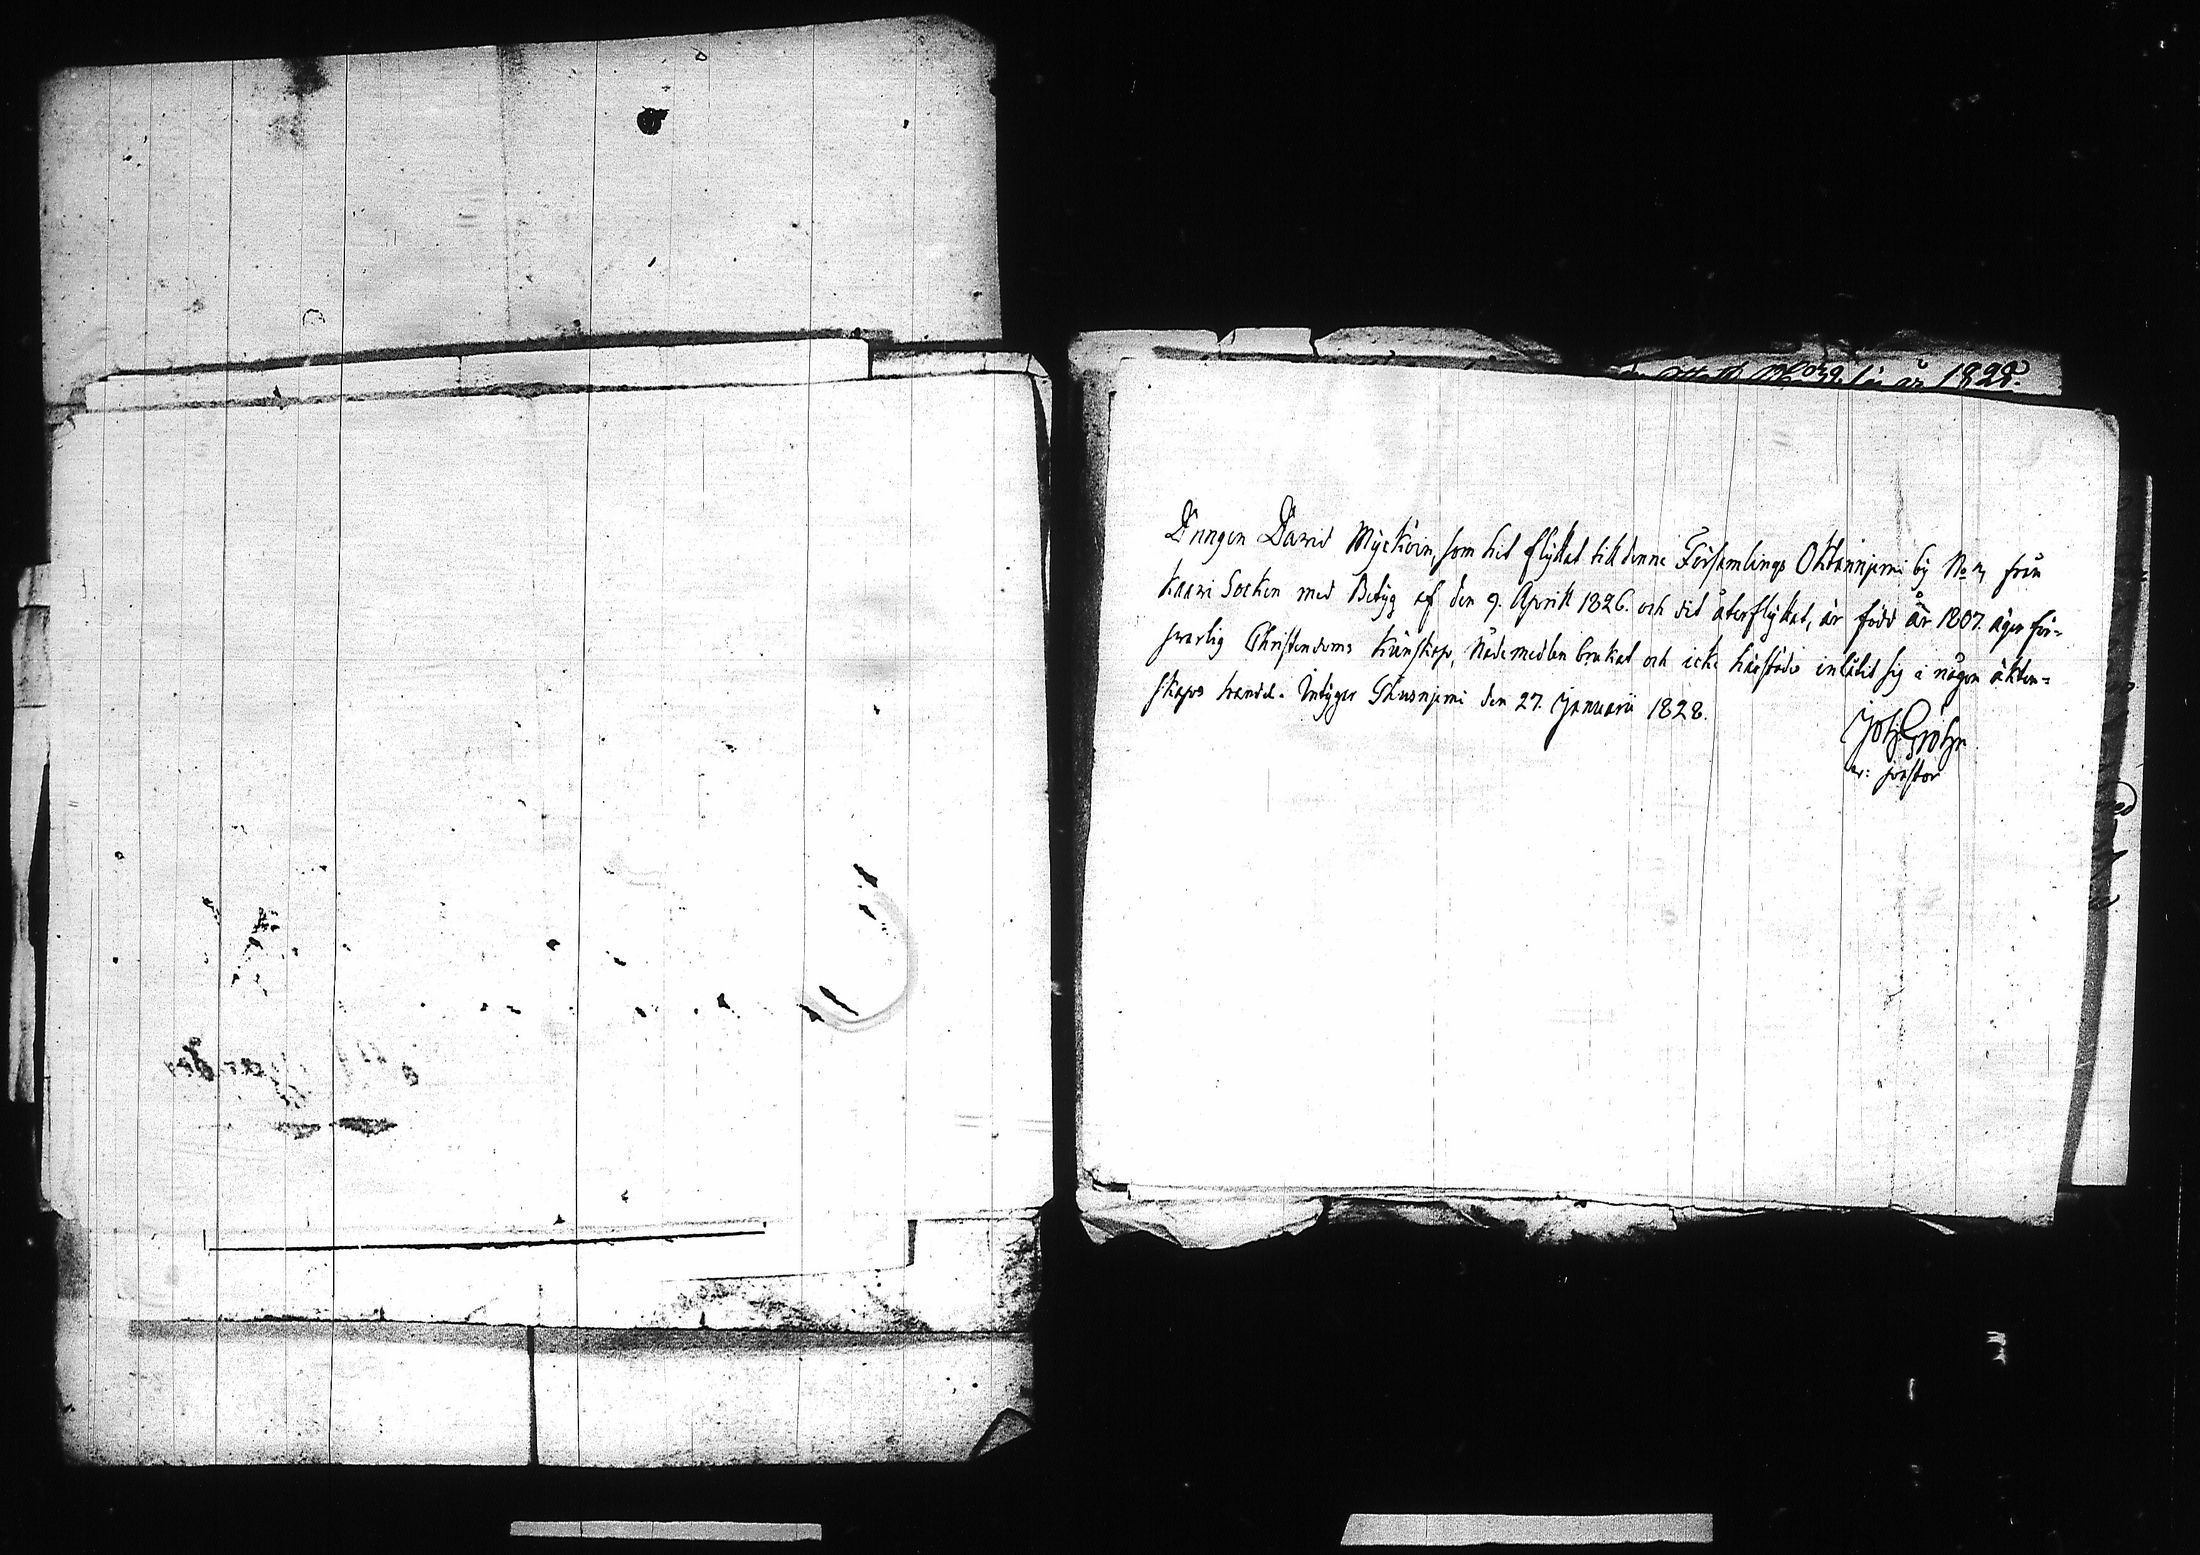 1828.
Drängen David Myckörin, som hit flyttat till denne Församlings Oktanniemi by No 4, från
kaavi Socken med Betyg af den 9. Aprill 1826. och dit återflyttat, är född år 1807. äger för=
svarlig Christendoms kunskap, Nådemedlen brukat och icke härstädes inlåtit sig i någon äkten=
skaps handel. Intygar Idensalmi den 27. Januarii 1828.
pastor